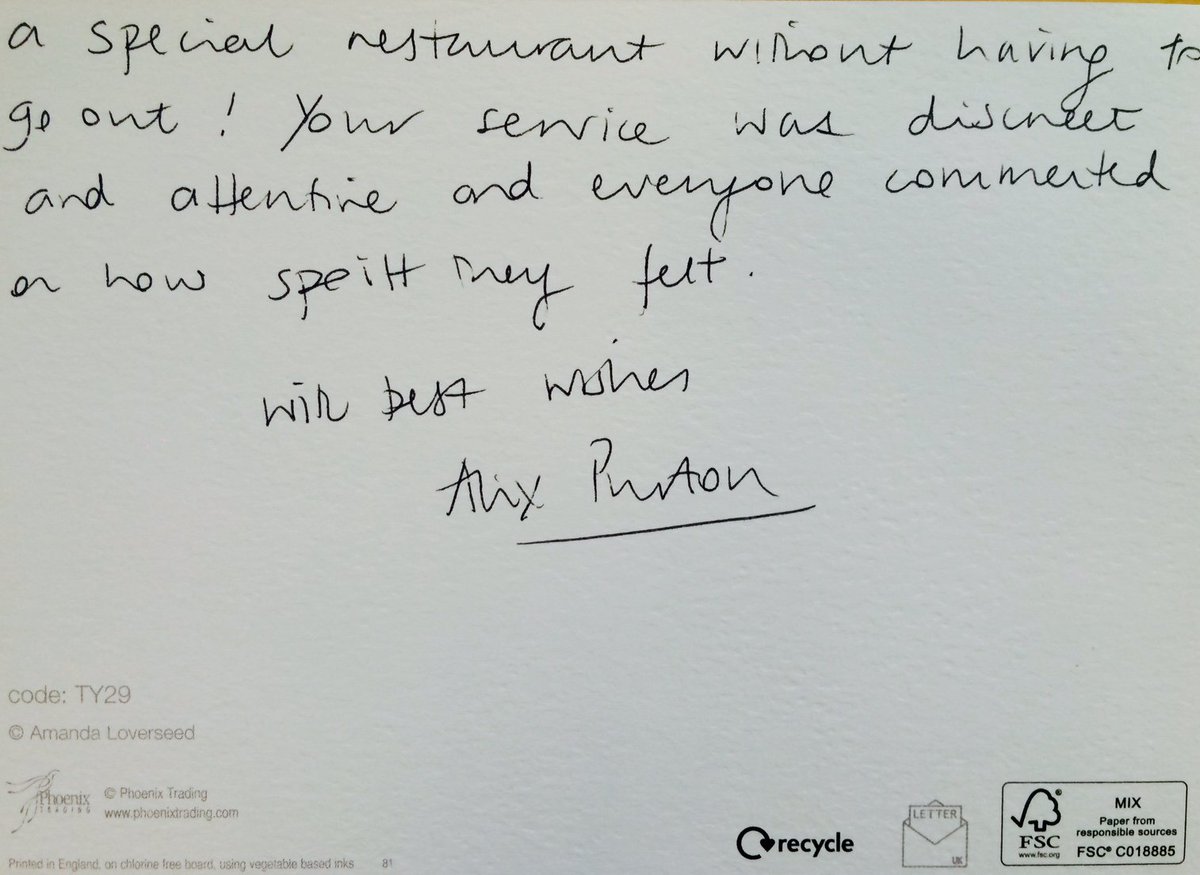 a special restaurant without having to
go out! Your service was discreet
and attentive and everyone commented
on how spoilt they felt.
with best wishes
Alix Purton
code: TY29
© Amanda Loverseed
Phoenix TRADING
© Phoenix Trading
www.phoenixtrading.com
Printed in England, on chlorine free board, using vegetable based inks 81
recycle
LETTER
UK
FSC
www.fsc.org
MIX
Paper from
responsible sources
FSC® C018885